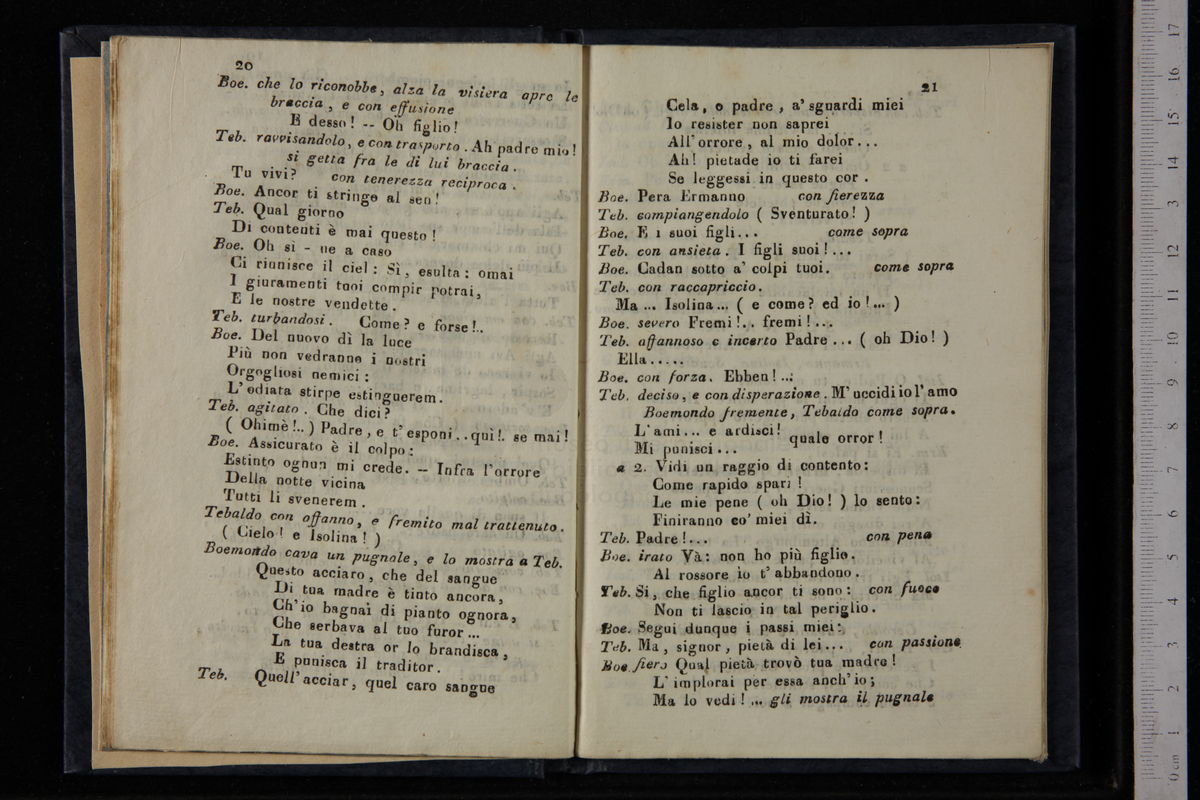 20
Boe. che lo riconobbe, alza la visiera apre le
braccia, e con effusione
E desso! -- Oh figlio!
Teb. ravvisandolo, e con trasporto. Ah padre mio!
si getta fra le di lui braccia.
Tu vivi? con tenerezza reciproca.
Boe. Ancor ti stringo al sen!
Teb. Qual giorno
Di contenti è mai questo!
Boe. Oh si - ne a caso
Ci riunisce il ciel: Sì, esulta: omai
I giuramenti tuoi compir potrai,
E le nostre vendette.
Teb. turbandosi. Come? e forse!..
Boe. Del nuovo dì la luce
Più non vedranno i nostri
Orgogliosi nemici:
L'odiata stirpe estinguerem.
Teb. agitato. Che dici?
( Ohimè!..) Padre, e t'esponi..quì!. se mai!
Boe. Assicurato è il colpo:
Estinto ognun mi crede. -- Infra l'orrore
Della notte vicina
Tutti li svenerem.
Tebaldo con affanno, e fremito mal trattenuto.
( Cielo! e Isolina! )
Boemondo cava un pugnale, e lo mostra a Teb.
Questo acciaro, che del sangue
Di tua madre è tinto ancora,
Ch'io bagnai di pianto ognora,
Che serbava al tuo furor...
La tua destra or lo brandisca,
E punisca il traditor.
Teb. Quell'acciar, quel caro sangue
21
Cela, o padre, a' sguardi miei
Io resister non saprei
All'orrore, al mio dolor...
Ah! pietade io ti farei
Se leggessi in questo cor.
Boe. Pera Ermanno con fierezza
Teb. compiangendolo ( Sventurato! )
Boe. E i suoi figli... come sopra
Teb. con ansieta. I figli suoi!...
Boe. Cadan sotto a' colpi tuoi. come sopra
Teb. con raccapriccio.
Ma... Isolina... ( e come? ed io!... )
Boe. severo Fremi!.. fremi!...
Teb. affannoso e incerto Padre... ( oh Dio! )
Ella.....
Boe. con forza. Ebben!...
Teb. deciso, e con disperazione. M'uccidi io l'amo
Boemondo fremente, Tebaldo come sopra.
L'ami... e ardisci!
quale orror!
Mi punisci...
a 2. Vidi un raggio di contento:
Come rapido sparì!
Le mie pene ( oh Dio! ) lo sento:
Finiranno co' miei dì.
Teb. Padre!... con pena
Boe. irato Và: non ho più figlio.
Al rossore io t'abbandono.
Teb. Si, che figlio ancor ti sono: con fuoco
Non ti lascio in tal periglio.
Boe. Segui dunque i passi miei:
Teb. Ma, signor, pietà di lei... con passione
Boe fiero Qual pietà trovò tua madre!
L'implorai per essa anch'io;
Ma lo vedi!... gli mostra il pugnale
0 cm 1 2 3 4 5 6 7 8 9 10 11 12 13 14 15 16 17